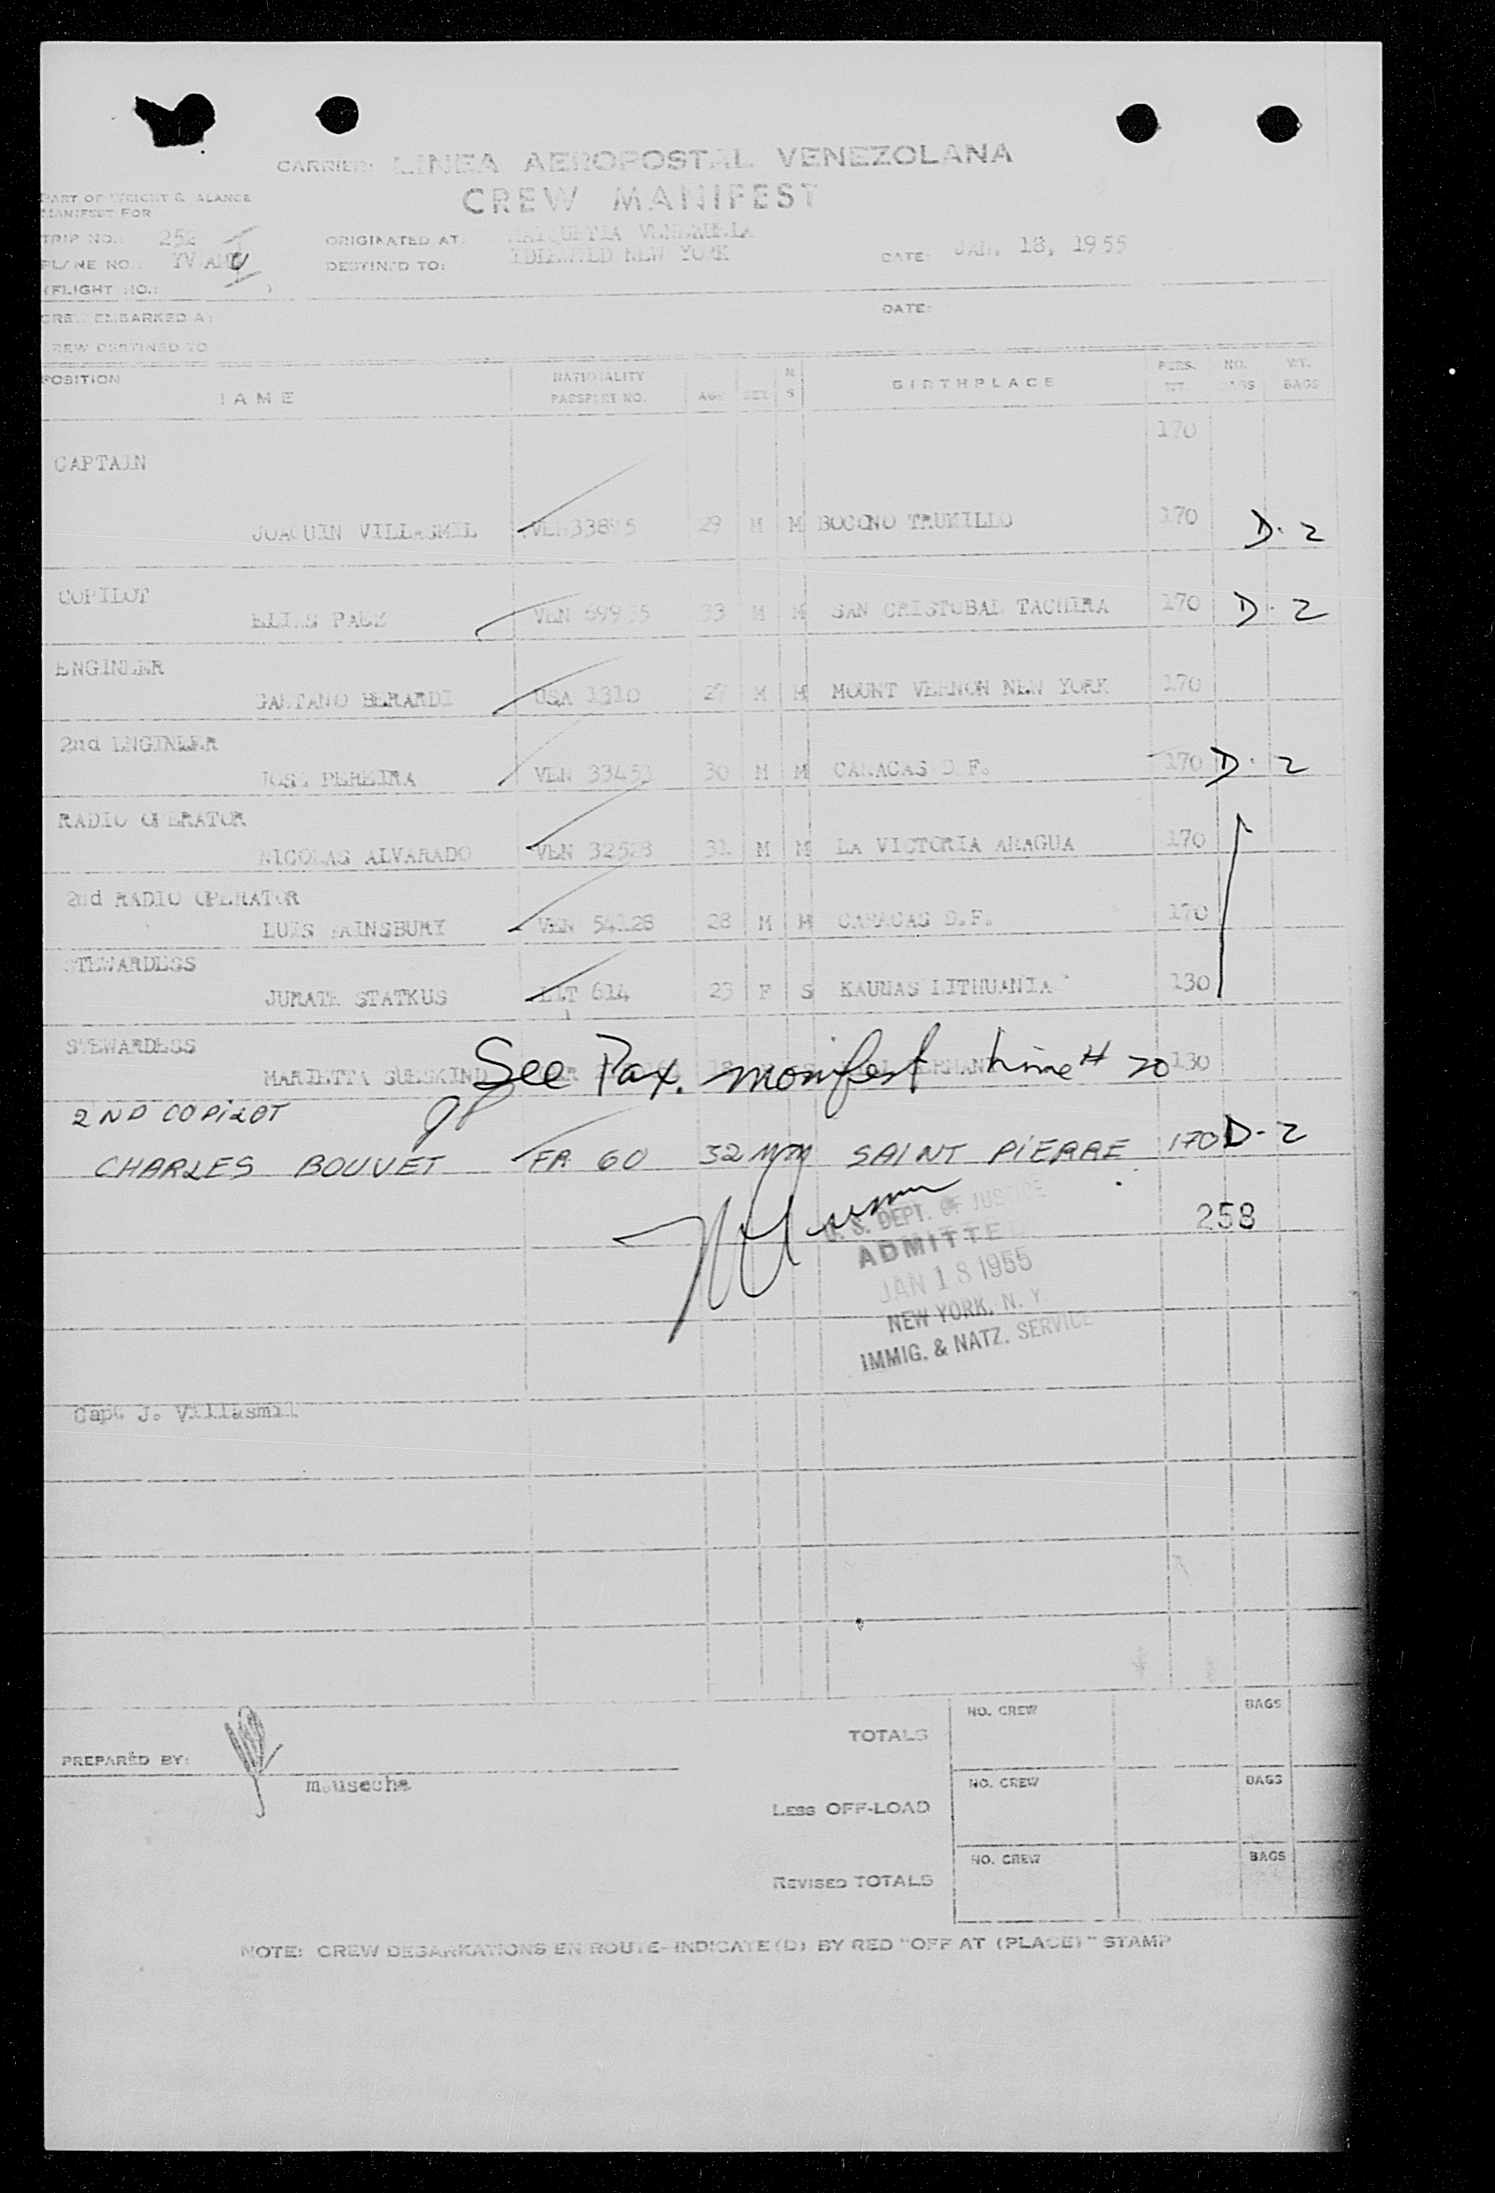 CARRIER: LINEA AEROPOSTAL VENEZOLANA
CREW MANIFEST
PART OF WEIGHT & BALANCE
MANIFEST FOR
TRIP NO.: 252
ORIGINATED AT: MAIQUETIA VENEZUELA
PLANE NO.:
DESTINED TO: IDLEWILD NEW YORK
DATE: JAN. 18, 1955
(FLIGHT NO.: )
CREW EMBARKED AT:
DATE:
CREW DESTINED TO
POSITION NAME NATIONALITY PASSPORT NO. AGE SEX M S BIRTHPLACE PERS. WT. NO. BAGS WT. BAGS
170
CAPTAIN
JOAQUIN VILLASMIL 29 M M BOCONO TRUJILLO 170 D-2
COPILOT
ELIAS PAEZ VEN 33 M M SAN CRISTOBAL TACHIRA 170 D-2
ENGINEER
GAETANO BERARDI USA 1310 27 M M MOUNT VERNON NEW YORK 170
2nd ENGINEER
JOSE PEREIRA VEN 30 M M CARACAS D.F. 170 D-2
RADIO OPERATOR
NICOLAS ALVARADO VEN 31 M M LA VICTORIA ARAGUA 170
2nd RADIO OPERATOR
LUIS SAINSBURY VEN 54128 28 M M CARACAS D.F. 170
STEWARDESS
JURATE STATKUS LIT 614 23 F S KAUNAS LITHUANIA 130
STEWARDESS
MARIETTA SUESKIND See Pax. manifest line # 20 130
2ND COPILOT
CHARLES BOUVET FR 60 32 M M SAINT PIERRE 170 D-2
258
U. S. DEPT. OF JUSTICE
ADMITTED
JAN 18 1955
NEW YORK, N. Y.
IMMIG. & NATZ. SERVICE
Capt J. Villasmil
NO. CREW BAGS
TOTALS
PREPARED BY:
mousecha
NO. CREW BAGS
LESS OFF-LOAD
NO. CREW BAGS
REVISED TOTALS
NOTE: CREW DEBARKATIONS EN ROUTE-INDICATE (D) BY RED "OFF AT (PLACE)" STAMP